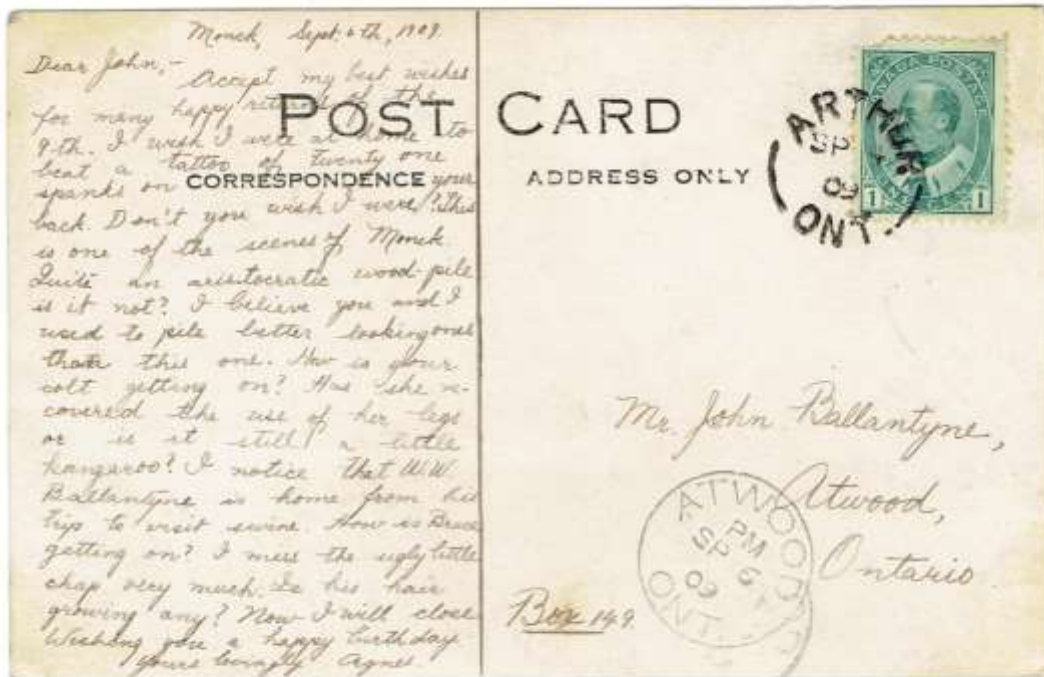 Monck, Sept. 6th, 1909.
Dear John,-
Accept my best wishes
for many happy returns of the
9-th. I wish I were at home to
beat a tattoo of twenty one
spanks on your
back. Don't you wish I were? This
is one of the scenes of Monck.
Quite an aristocratic wood-pile
is it not? I believe you and I
used to pile better looking ones
than this one. How is your
colt getting on? Has she re-
covered the use of her legs
or is it still a little
kangaroo? I notice that W.W.
Ballantyne is home from his
trip to visit swine. How is Bruce
getting on? I miss the ugly little
chap very much. Is his hair
growing any? Now I will close
Wishing you a happy birthday
Yours lovingly Agnes
POST CARD
CORRESPONDENCE
ADDRESS ONLY
CANADA POSTAGE
1 1
ARTHUR
SP
09
ONT.
Mr. John Ballantyne,
Atwood,
Ontario.
Box 149.
ATWOOD
PM
SP 6
09
ONT.